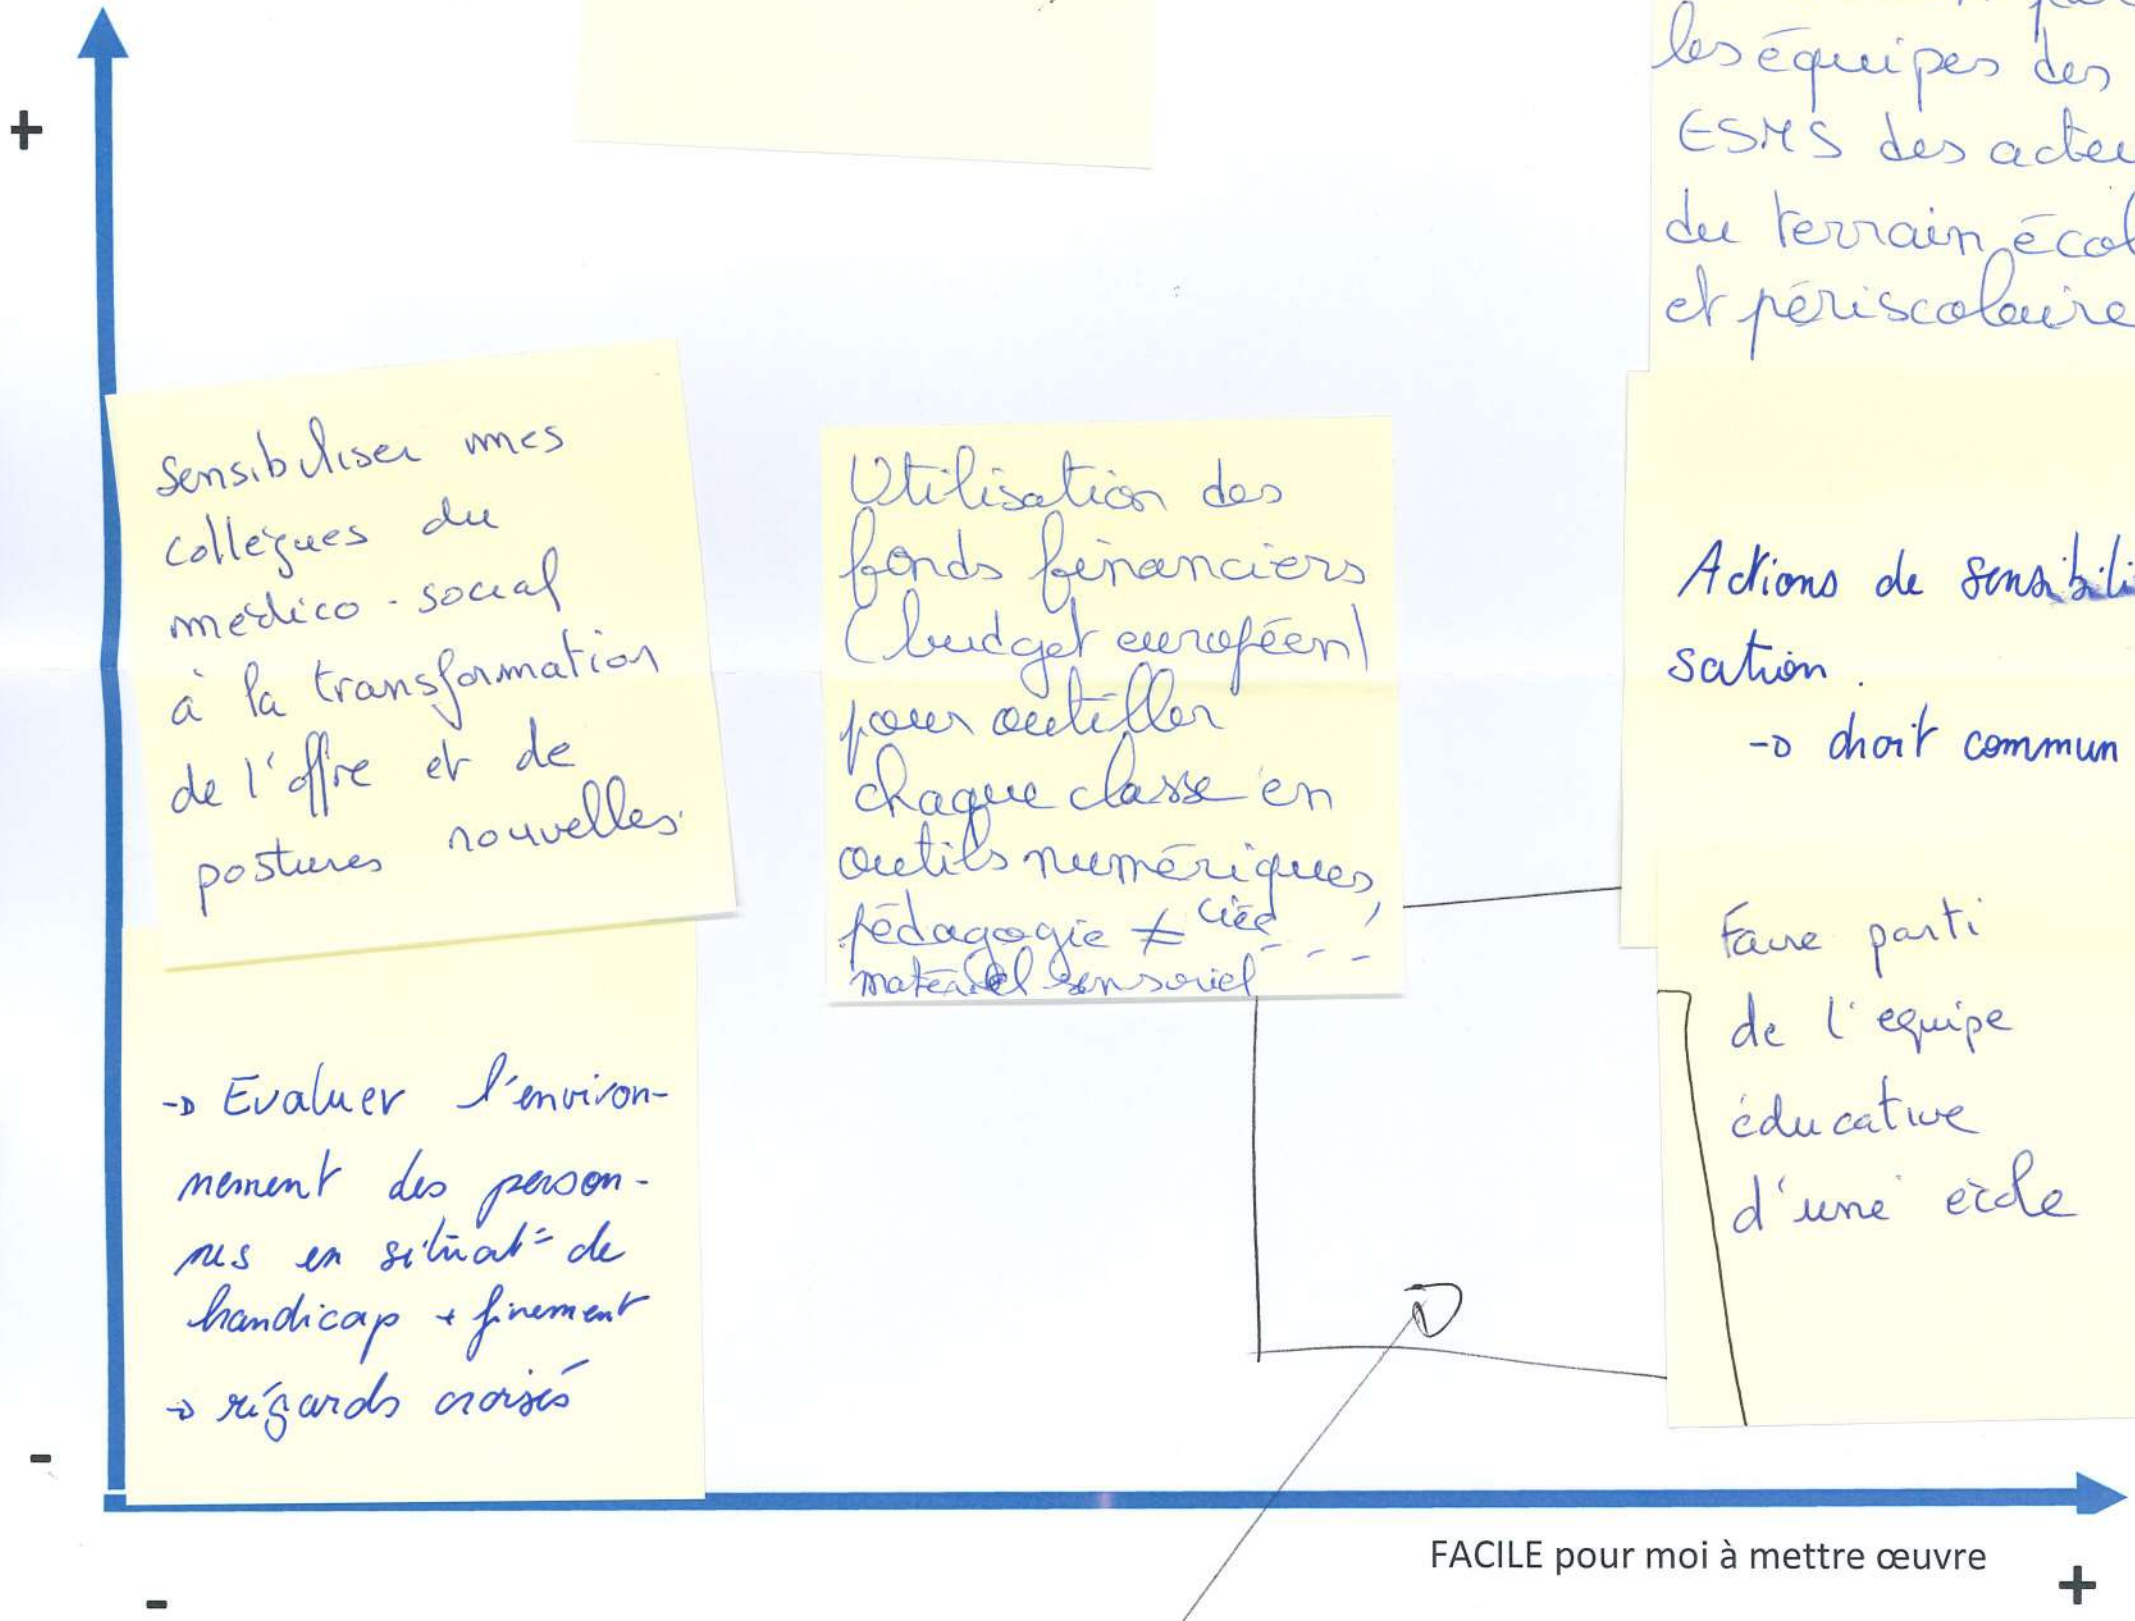 +
les équipes des
ESMS des acteu
du terrain, écol
et périscolaire
Sensibiliser mes
collègues du
médico-social
à la transformation
de l'offre et de
postures nouvelles.
Utilisation des
fonds financiers
(budget européen)
pour outiller
chaque classe en
outils numériques,
pédagogie ≠ ciée
matériel sensoriel - - -
Actions de sensibili
sation.
→ droit commun
→ Evaluer l'environ-
nement des person-
nes en situat° de
handicap + finement
→ régards croisés
Faire parti
de l'equipe
éducative
d'une école
-
FACILE pour moi à mettre œuvre
-
+